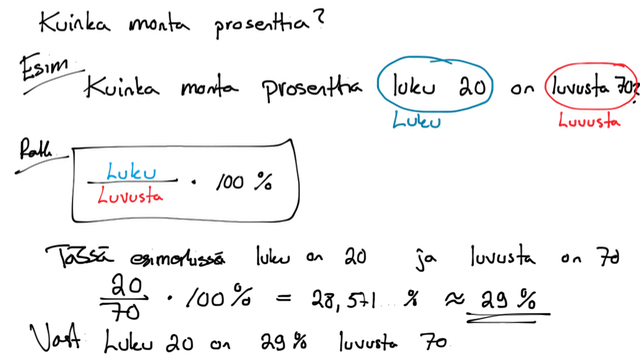 Kuinka monta prosenttia?
Esim
Kuinka monta prosenttia luku 20 on luvusta 70?
Luku Luvusta
Ratk
Luku
Luvusta · 100 %
Tässä esimerkissä luku on 20 ja luvusta on 70
20
70 · 100 % = 28,571... % ≈ 29 %
Vast Luku 20 on 29 % luvusta 70